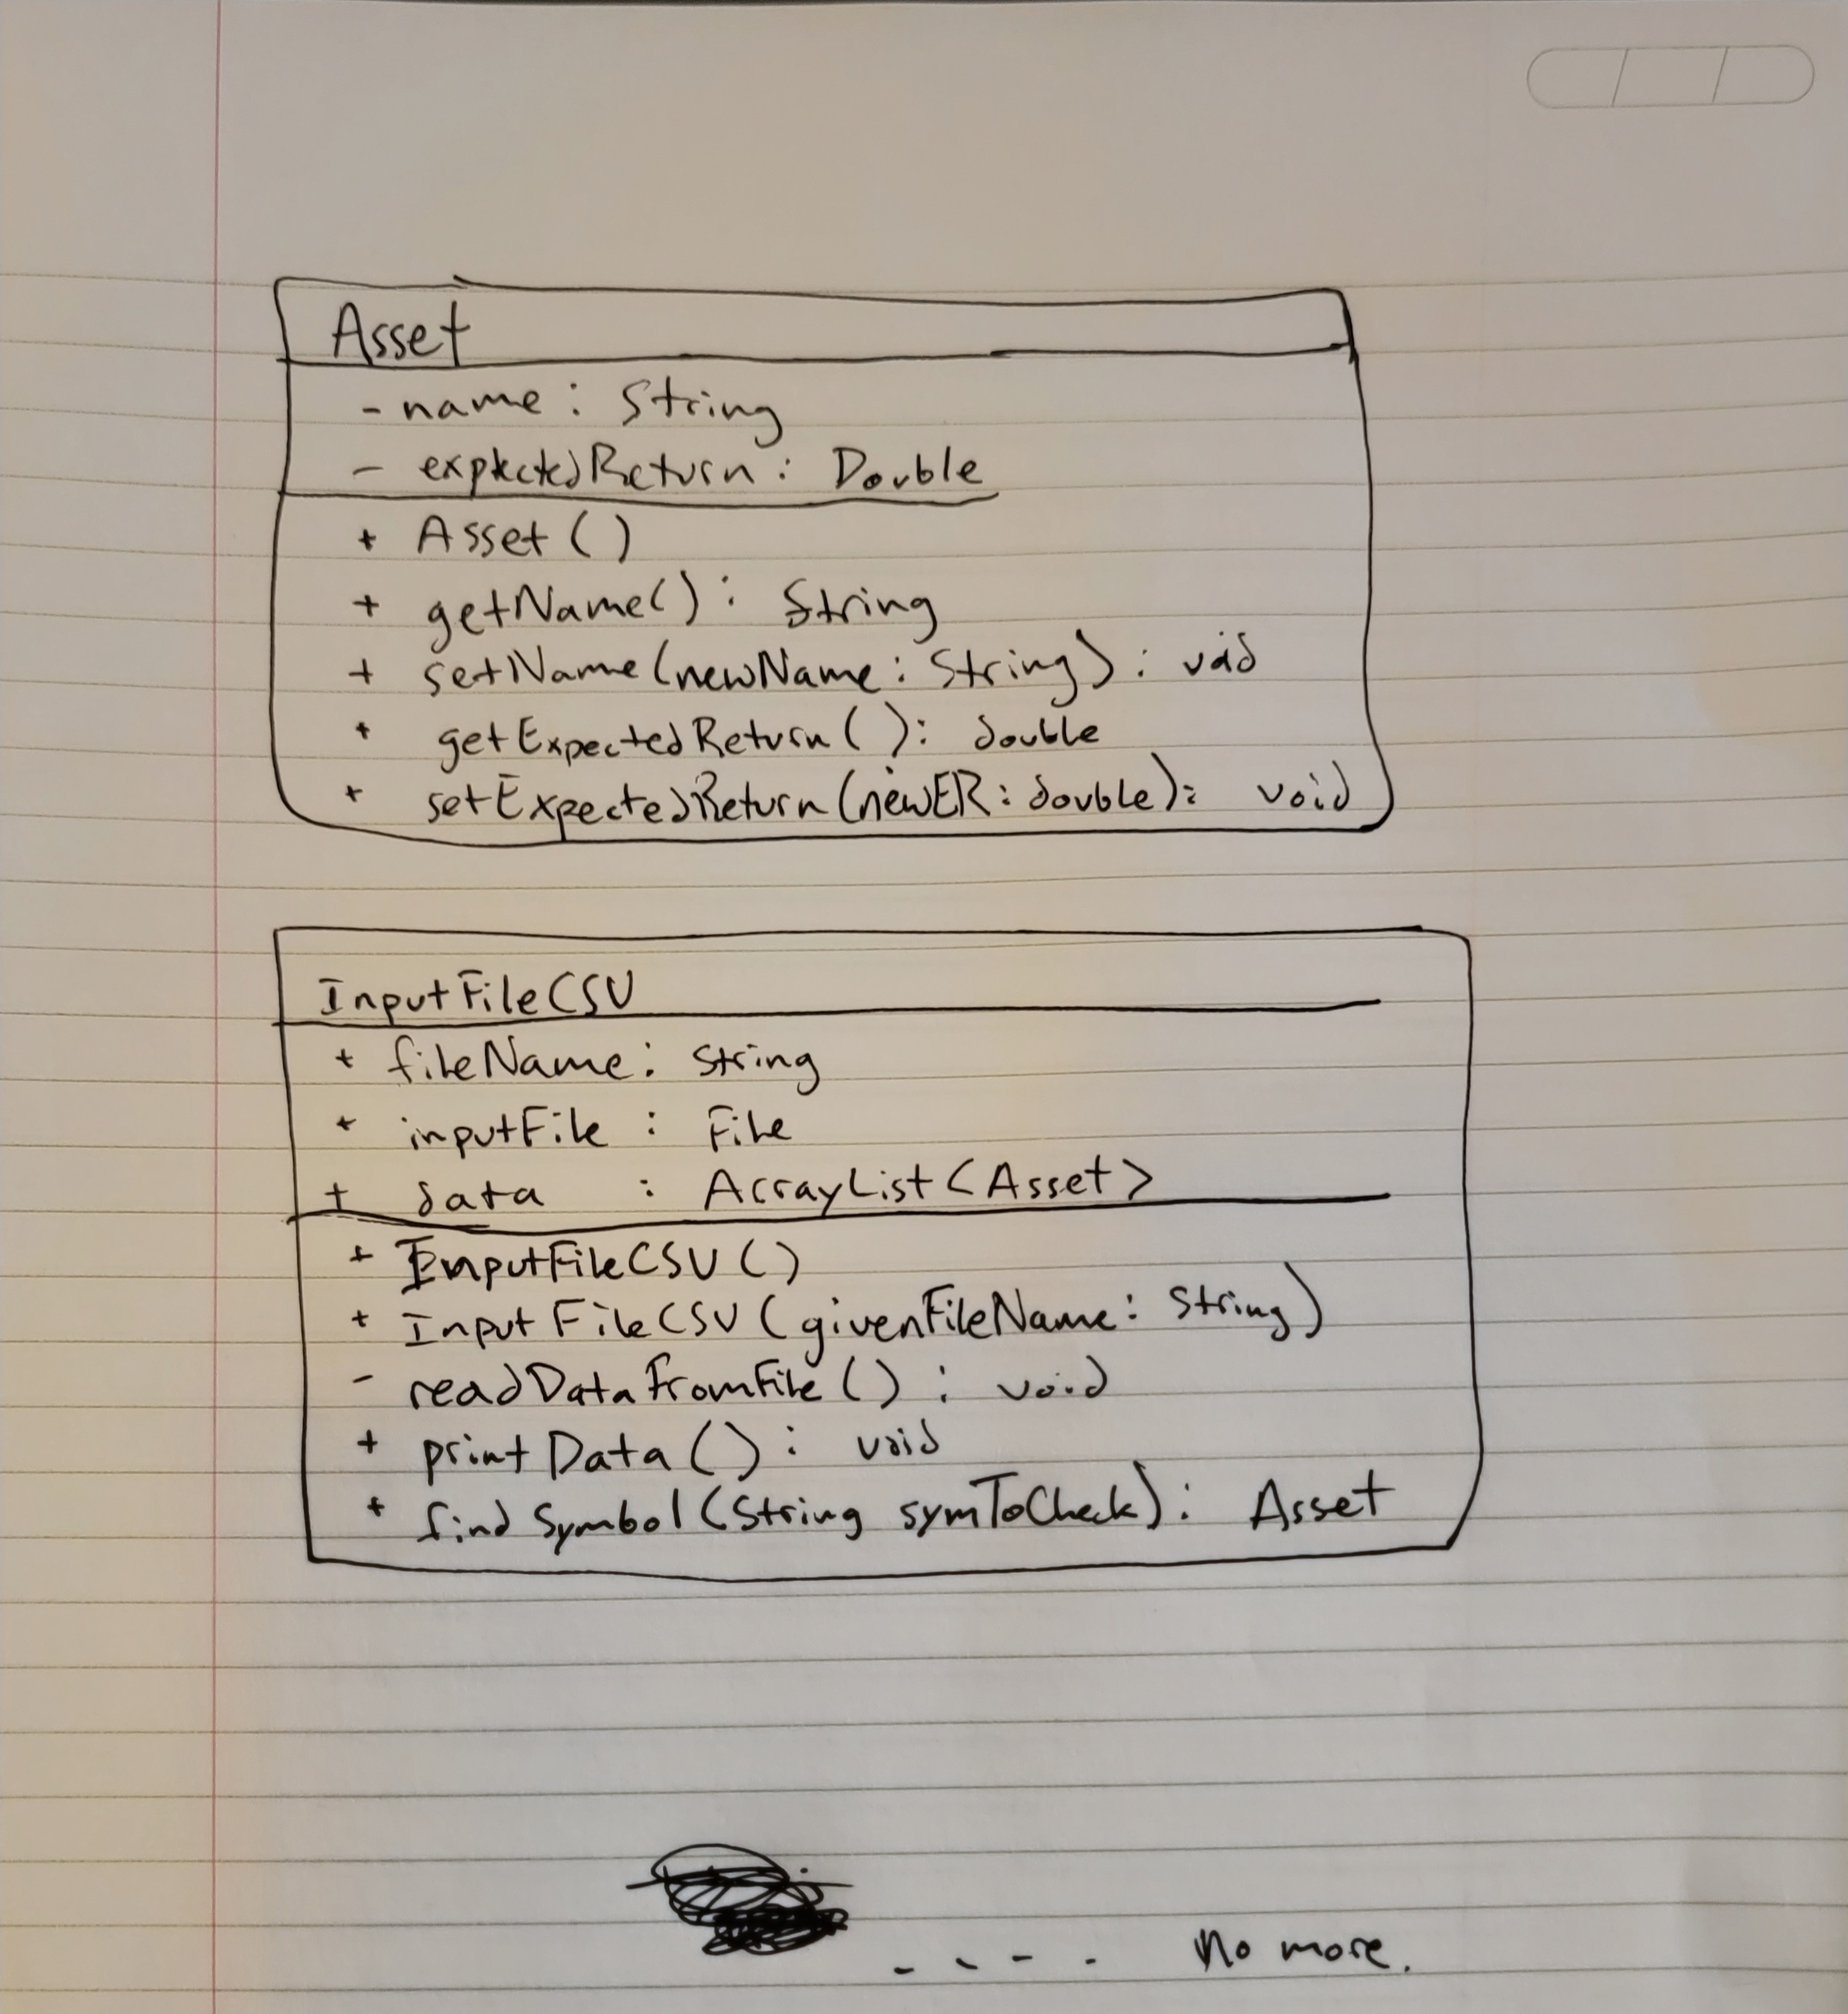 Asset
- name : String
- expectedReturn : Double
+ Asset ()
+ getName() : String
+ setName (newName : String) : void
+ getExpectedReturn ( ) : double
+ setExpectedReturn (newER : double) : void
InputFileCSV
+ fileName : String
+ inputFile : File
+ data : ArrayList <Asset>
+ InputFileCSV ()
+ InputFileCSV (givenFileName : String)
- readDataFromFile () : void
+ printData () : void
+ findSymbol (String symToCheck) : Asset
- - - - No more.